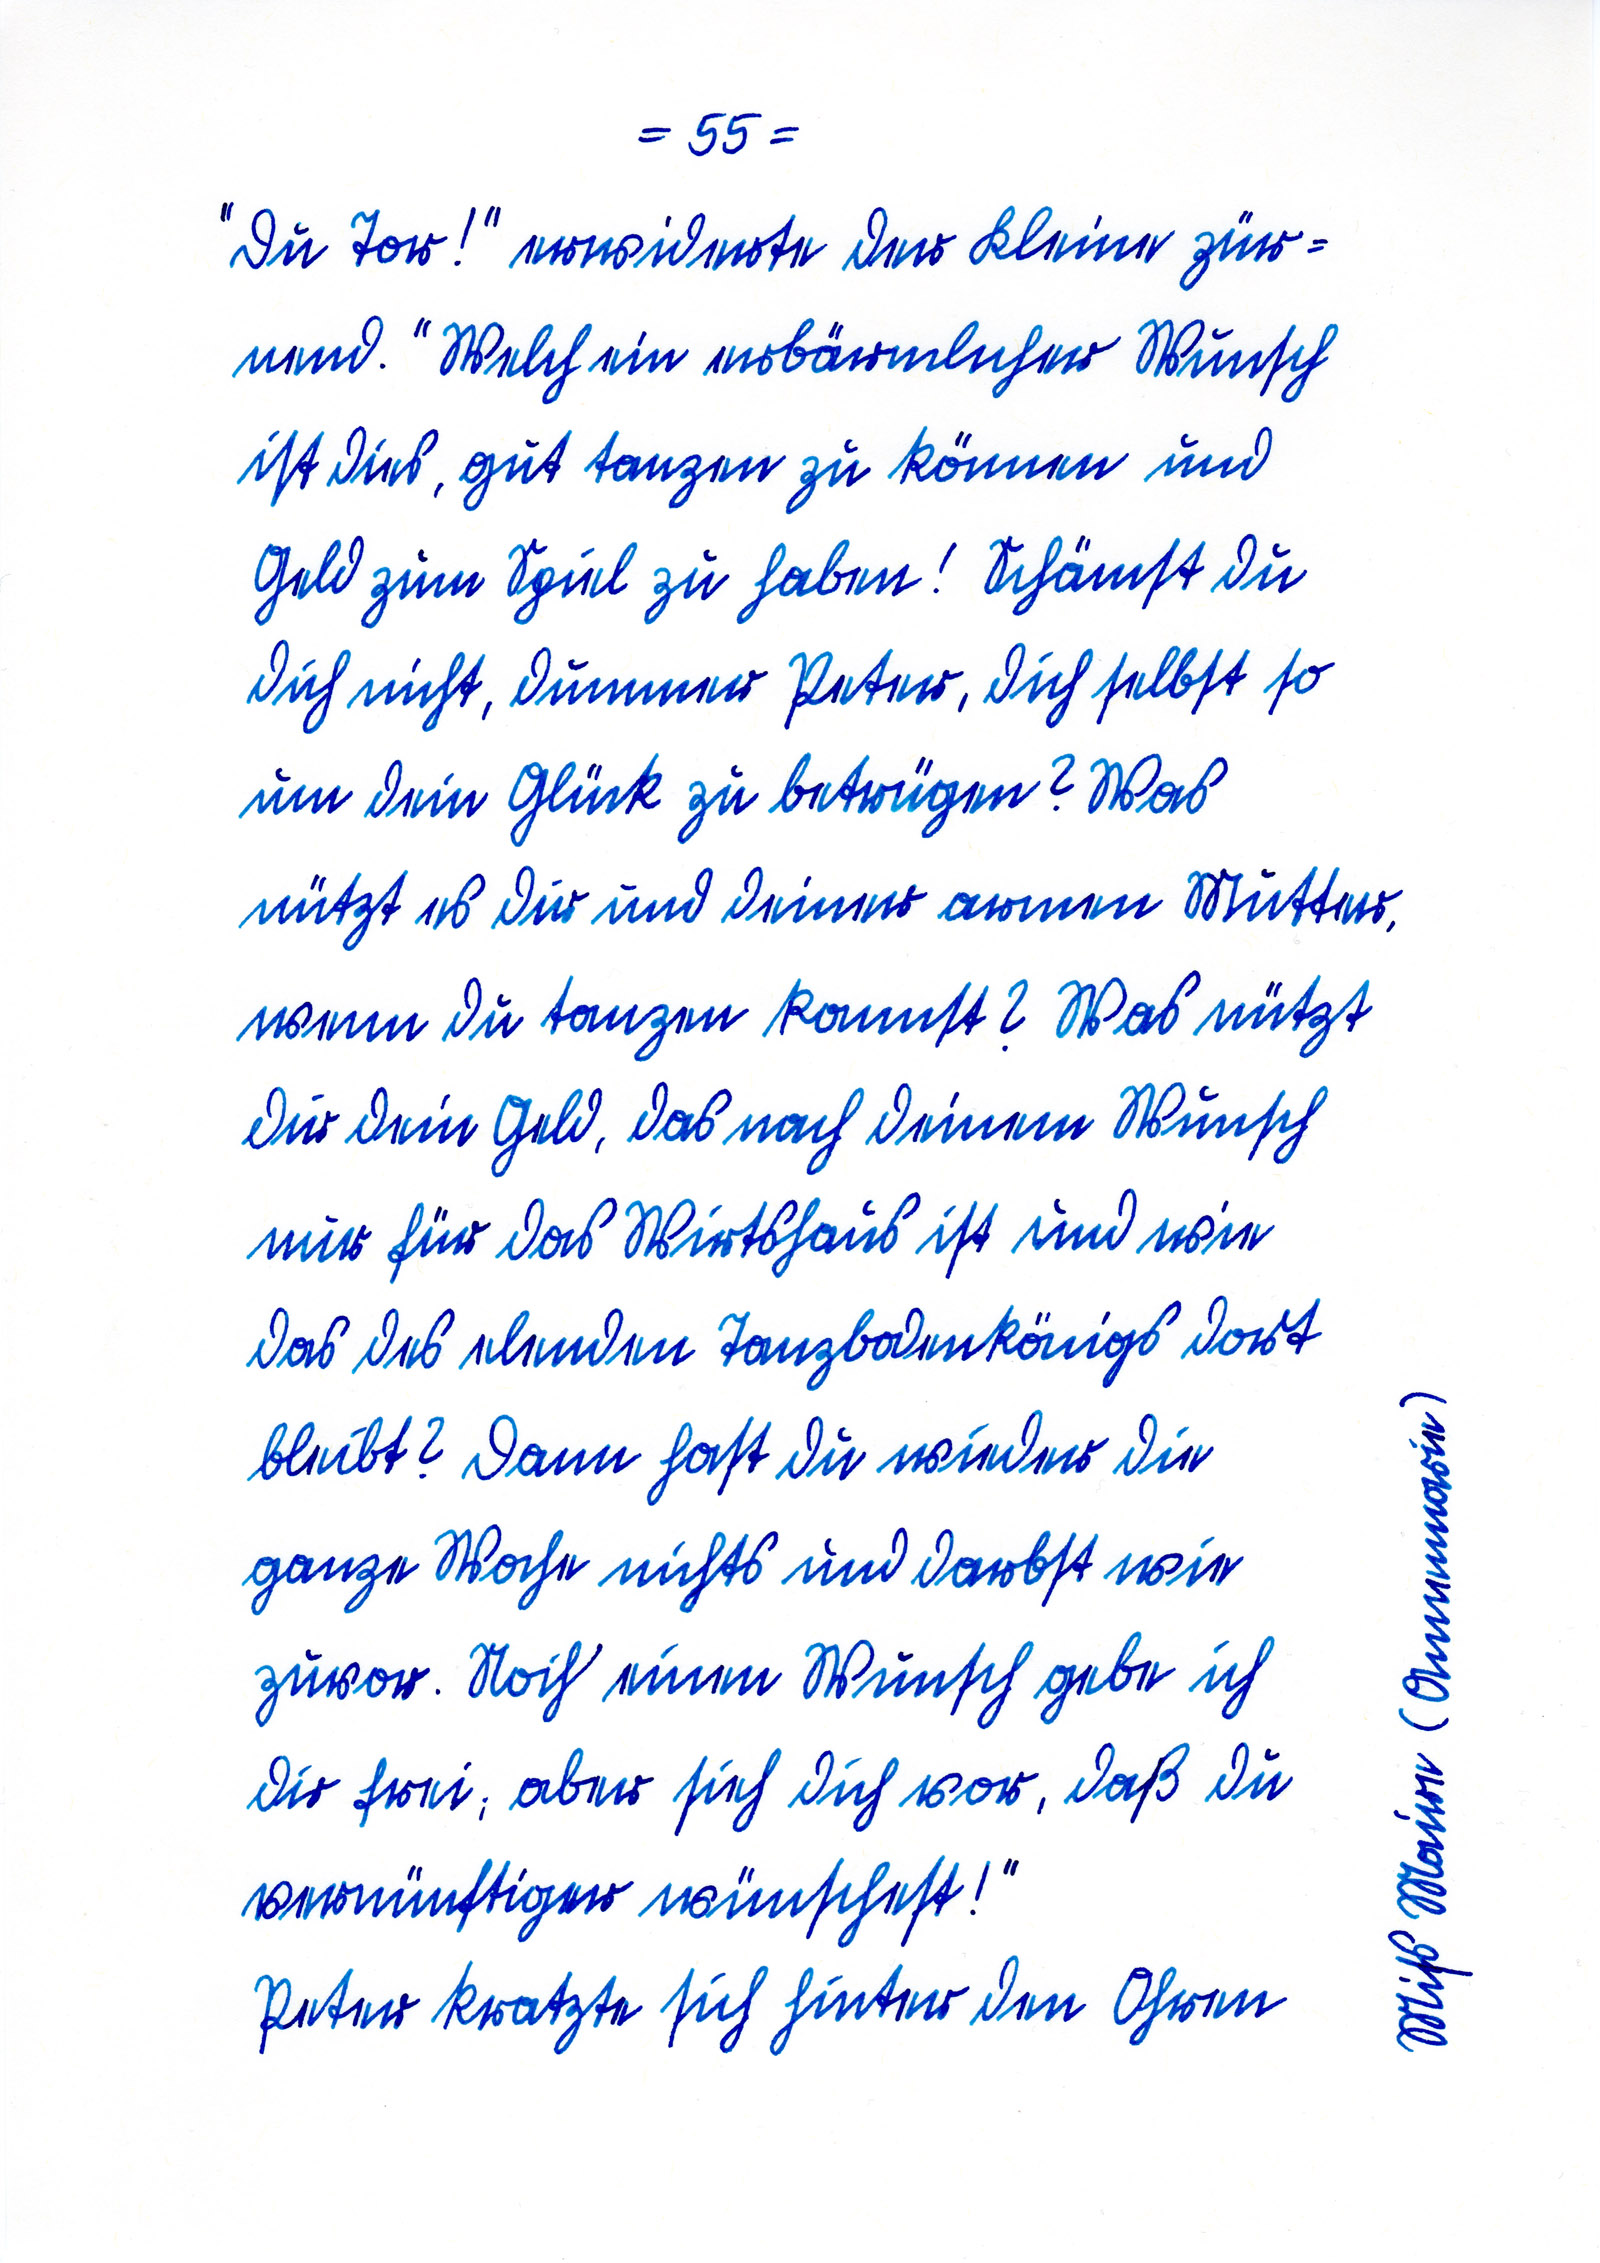 = 55 =
"Du Tor!" erwiderte der Kleine zür=
nend. "Welch ein erbärmlicher Wunsch
ist dies, gut tanzen zu können und
Geld zum Spiel zu haben! Schämst du
dich nicht, dummer Peter, dich selbst so
um dein Glück zu betrügen? Was
nützt es dir und deiner armen Mutter,
wenn du tanzen kannst? Was nützt
dir dein Geld, das nach deinem Wunsch
nur für das Wirtshaus ist und wie
das des elenden Tanzbodenkönigs dort
bleibt? Dann hast du wieder die
ganze Woche nichts und darbst wie
zuvor. Noch einen Wunsch gebe ich
dir frei; aber sieh dich vor, daß du
vernünftiger wünschest!"
Peter kratzte sich hinter den Ohren
Miß Maire (Annemarie)